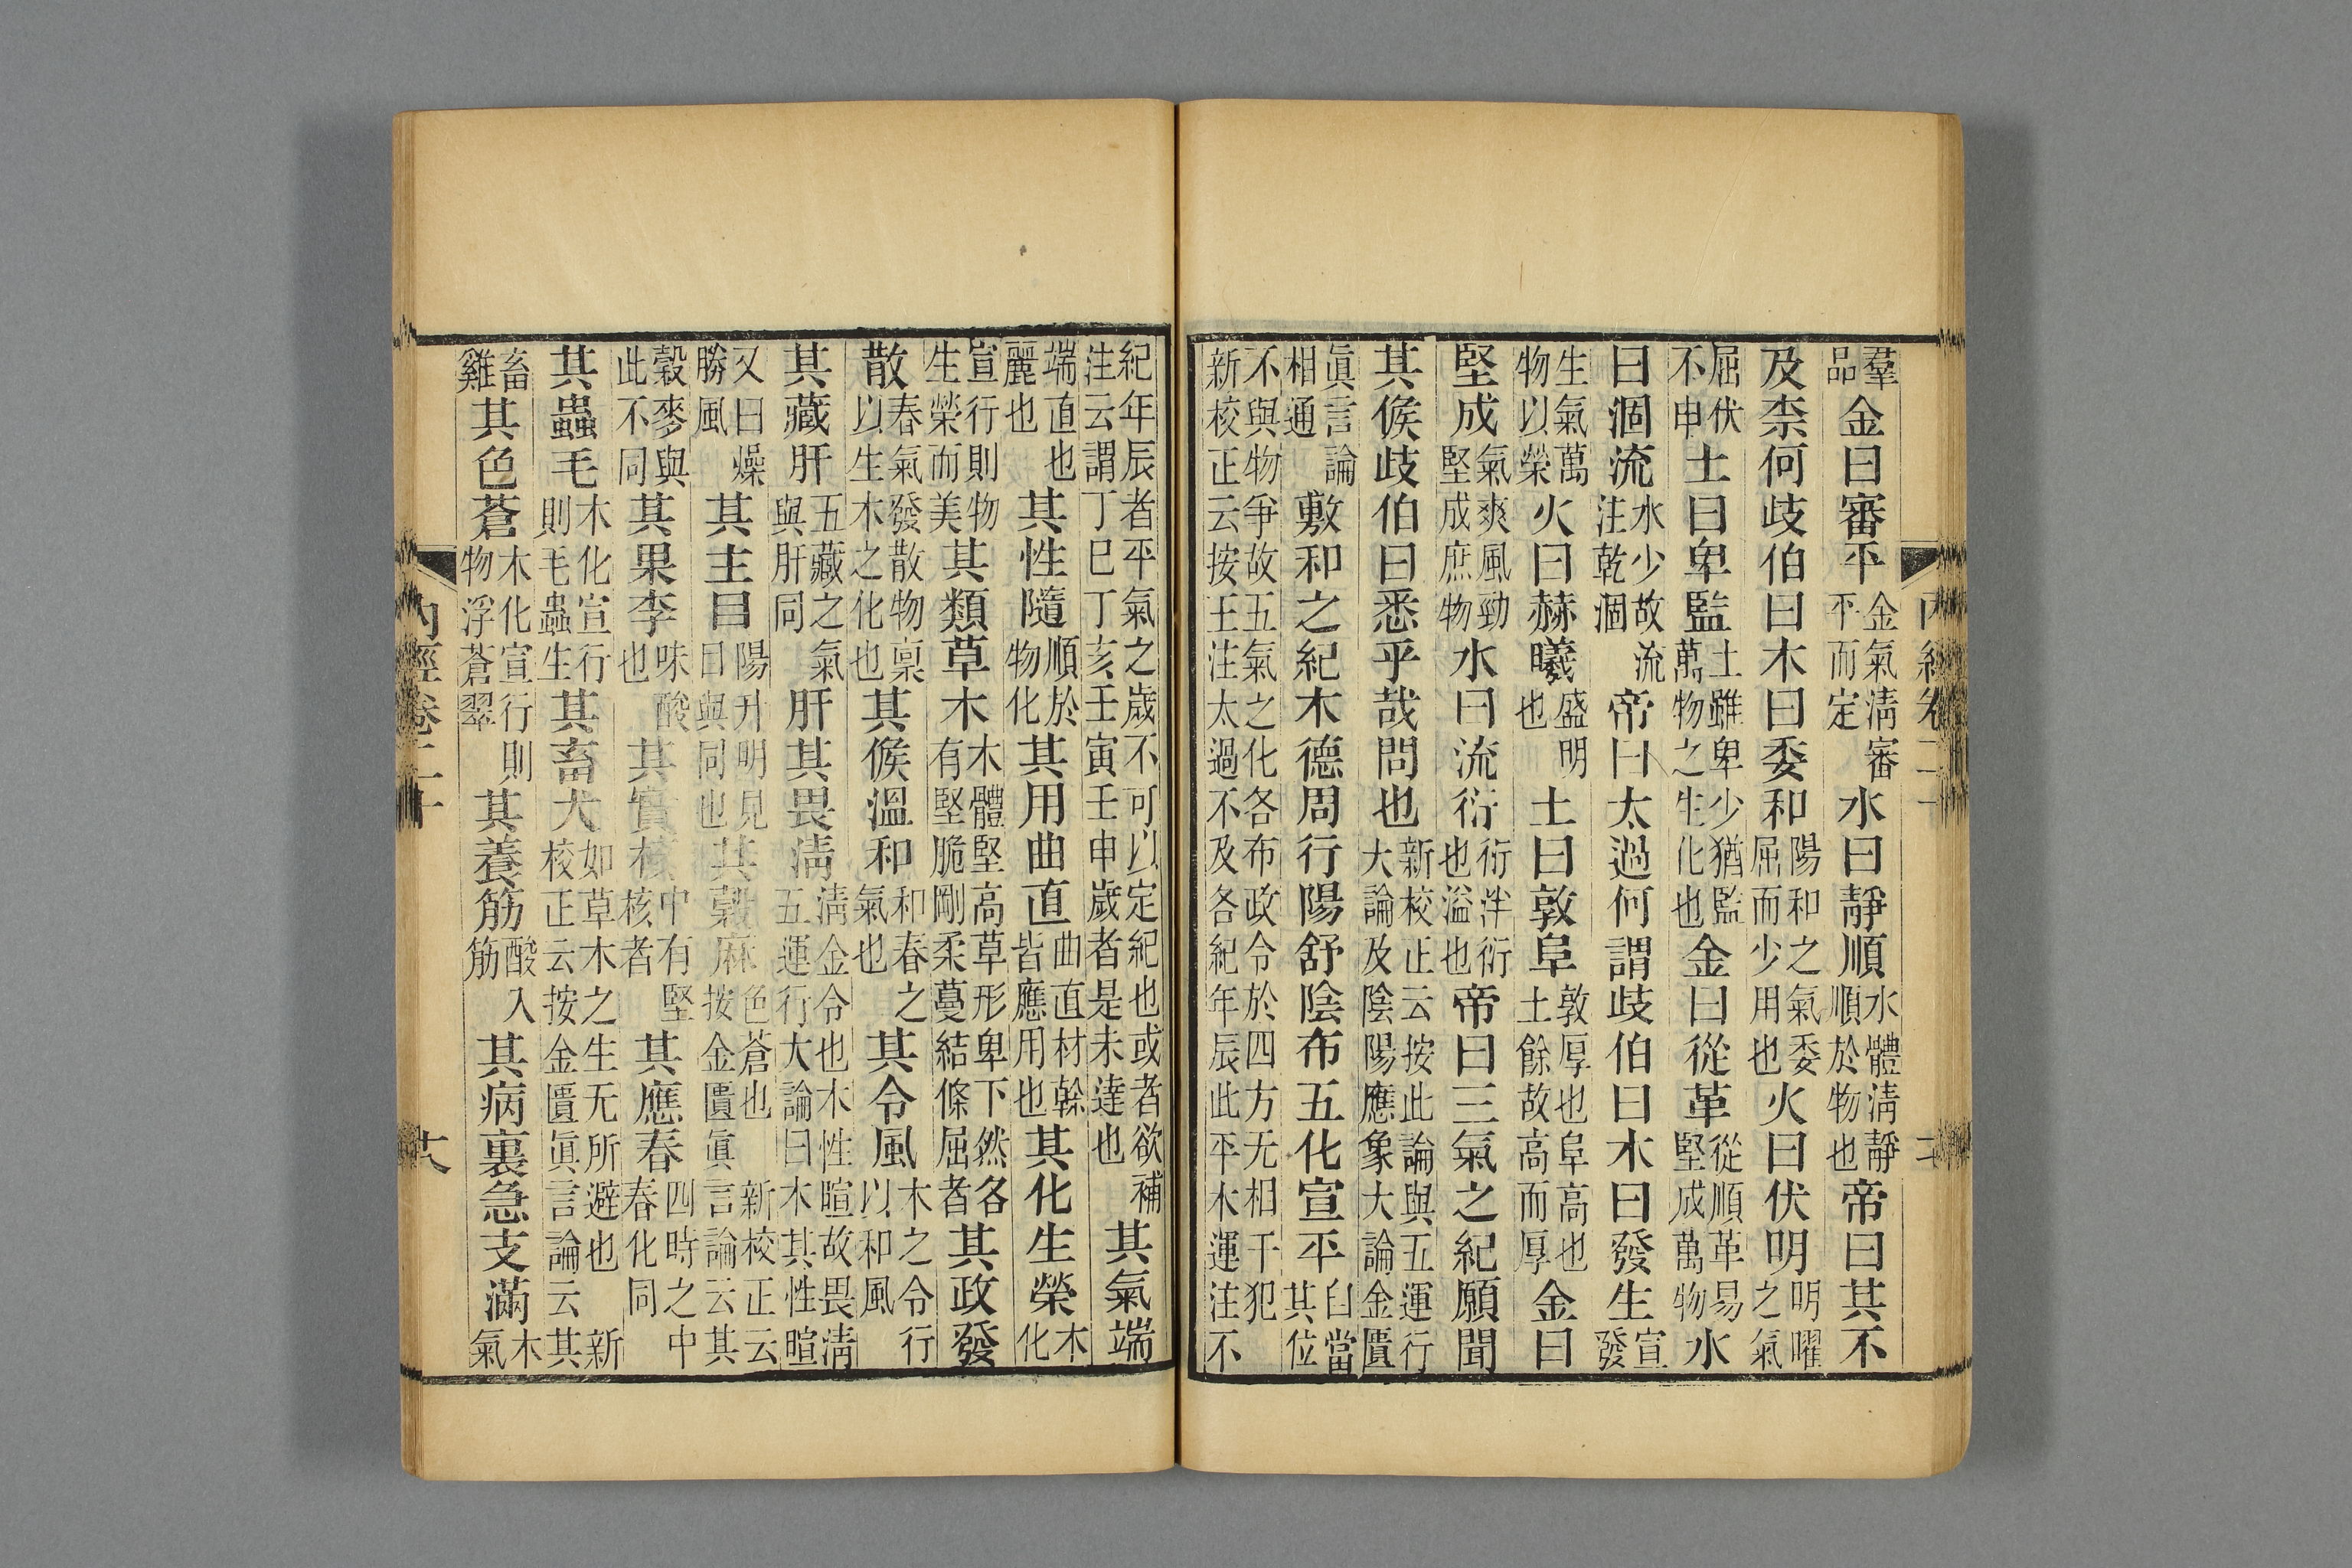 羣品金曰審平金氣清審平而定水曰靜順水體清靜順於物也帝曰其不
及柰何歧伯曰木曰委和陽和之氣委屈而少用也火曰伏明明曜之氣
屈伏不申土曰卑監土雖卑少猶監萬物之生化也金曰從革從順革易堅成萬物水
曰涸流水少故流注乾涸帝曰太過何謂歧伯曰木曰發生宣發
生氣萬物以榮火曰赫曦盛明也土曰敦阜敦厚也阜高也土餘故高而厚金曰
堅成氣爽風勁堅成庶物水曰流衍衍泮衍也溢也帝曰三氣之紀願聞
其候歧伯曰悉乎哉問也新校正云按此論與五運行大論及陰陽應象大論金匱
眞言論相通敷和之紀木德周行陽舒陰布五化宣平自當其位
不與物爭故五氣之化各布政令於四方无相干犯新校正云按王注太過不及各紀年辰此平木運注不
紀年辰者平氣之歲不可以定紀也或者欲補注云謂丁巳丁亥壬寅壬申歲者是未達也其氣端
端直也麗也其性隨順於物化其用曲直曲直材幹皆應用也其化生榮木化
宣行則物生榮而美其類草木木體堅高草形卑下然各有堅脆剛柔蔓結條屈者其政發
散春氣發散物稟以生木之化也其候溫和和春之氣也其令風木之令行以和風
其藏肝五藏之氣與肝同肝其畏清清金令也木性暄故畏清五運行大論曰木其性暄
又曰燥勝風其主目陽升明見目與同也其穀麻色蒼也新校正云按金匱眞言論云其
穀麥與此不同其果李味酸也其實核中有堅核者其應春四時之中春化同
其蟲毛木化宣行則毛蟲生其畜犬如草木之生无所避也新校正云按金匱眞言論云其
畜雞其色蒼木化宣行則物浮蒼翠其養筋酸入筋其病裏急支滿木氣